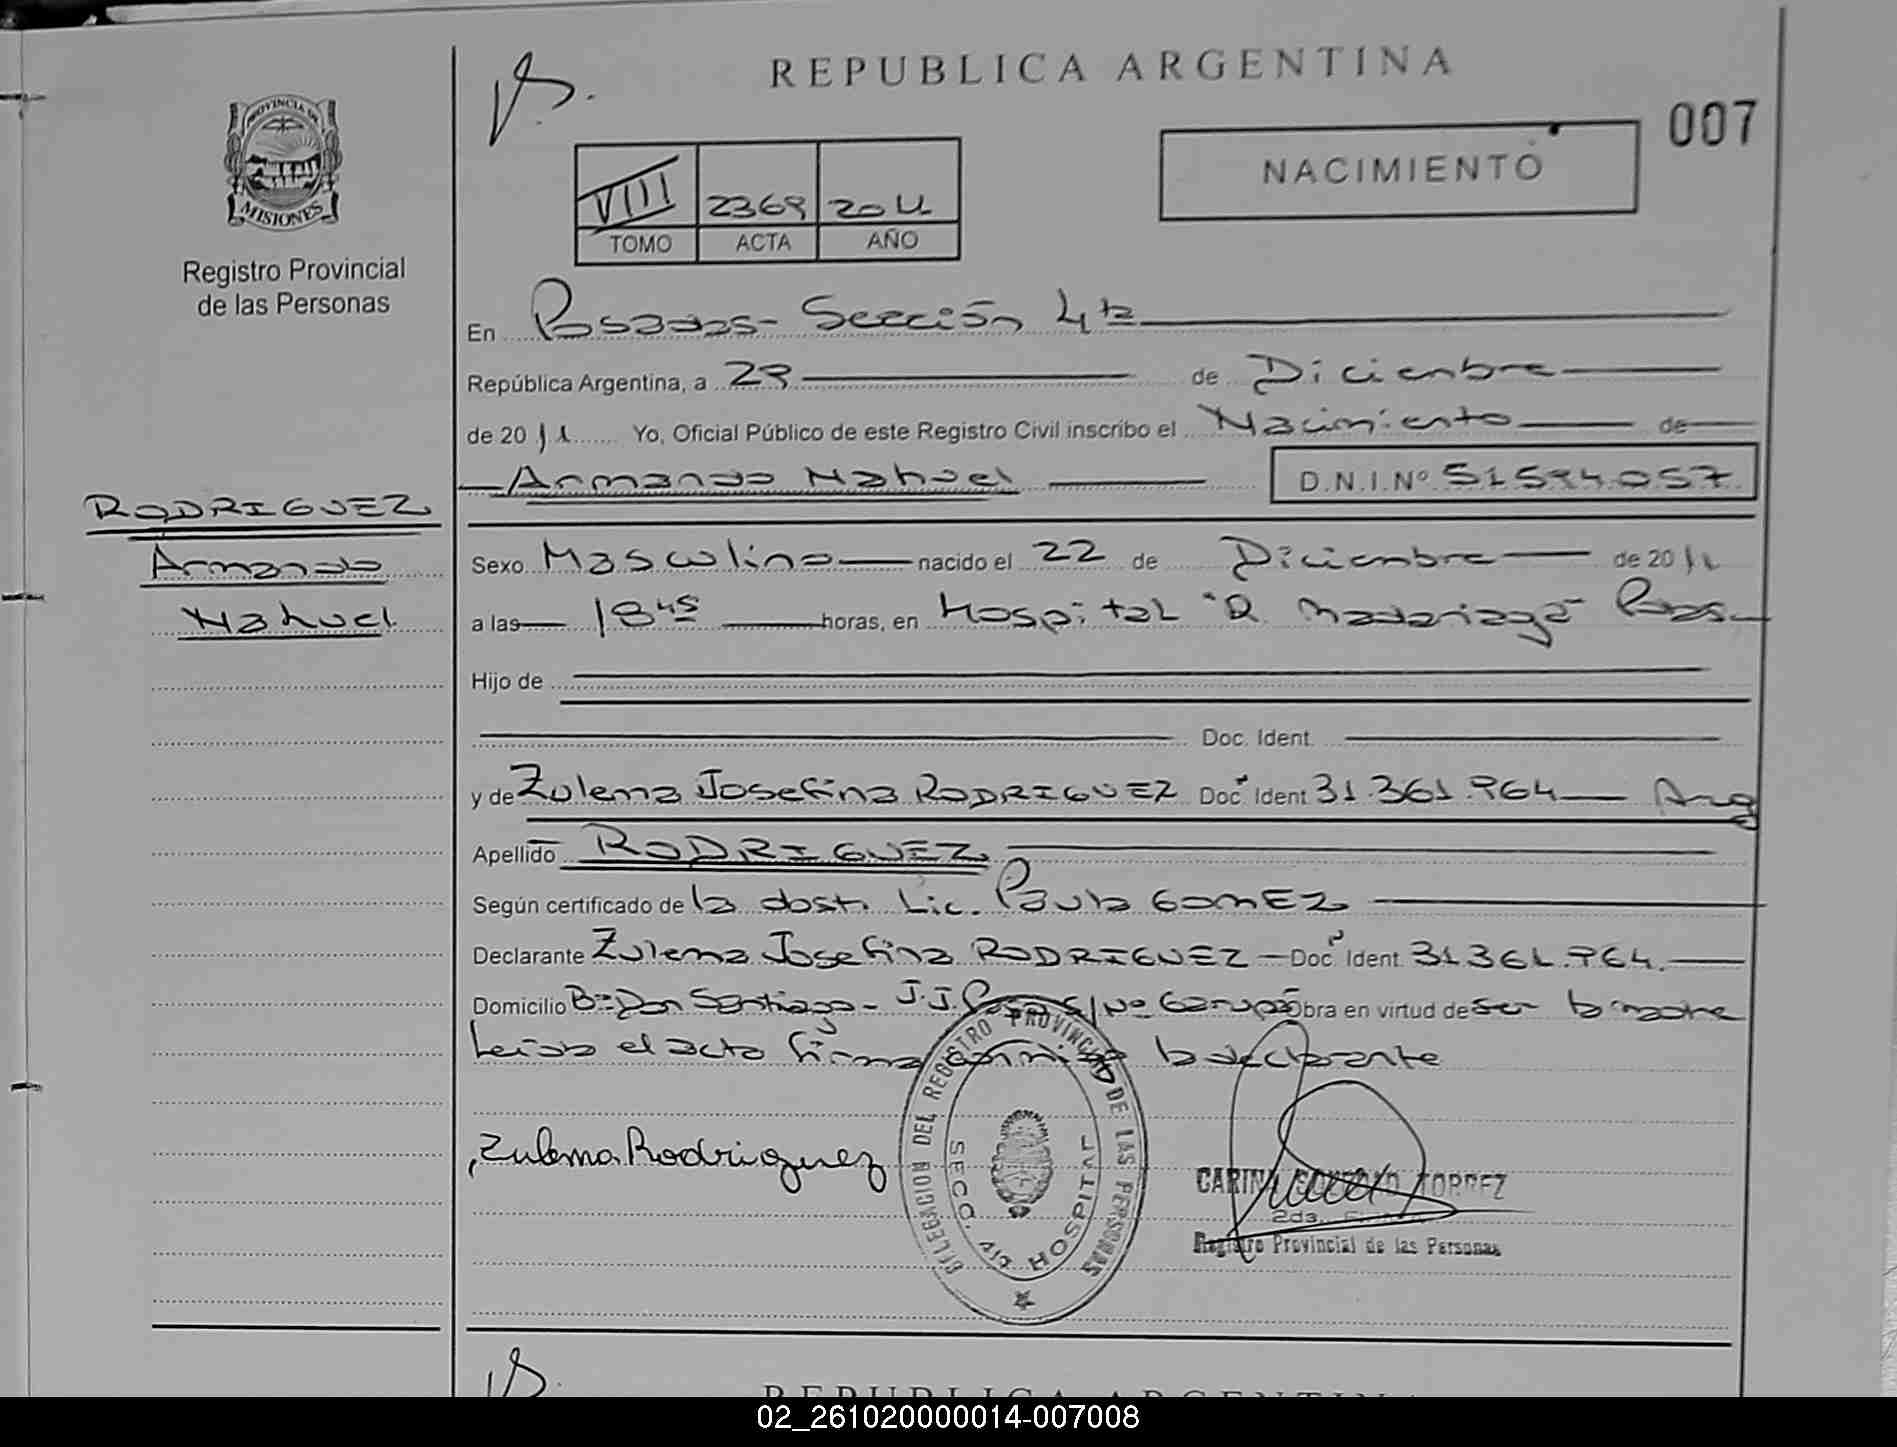 REPUBLICA ARGENTINA
007
NACIMIENTO
VIII 2369 2011
TOMO ACTA AÑO
PROVINCIA DE
MISIONES
Registro Provincial
de las Personas
En Posadas - Sección 4ta
República Argentina, a 29 de Diciembre
de 2011 Yo, Oficial Público de este Registro Civil inscribo el Nacimiento de
Armando Nahuel D.N.I.Nº 51.594.057
RODRIGUEZ
Armando
Nahuel
Sexo Masculino nacido el 22 de Diciembre de 2011
a las 18 45 horas, en Hospital "R. Madariaga" Pdas.
Hijo de
Doc. Ident.
y de Zulema Josefina RODRIGUEZ Doc. Ident. 31.361.964 Arg
Apellido RODRIGUEZ
Según certificado de la obst. Lic. Paula GomEZ
Declarante Zulema Josefina RODRIGUEZ - Doc. Ident. 31.361.964.
Domicilio Bº Don Santiago - J.J. Paso S/Nº Garupá Obra en virtud de ser la madre
Leída el acta firma conmigo la declarante
Zulema Rodriguez
DELEGACION DEL REGISTRO PROVINCIAL DE LAS PERSONAS
SECC. 4ta HOSPITAL
CARINA TORREZ
2da.
Registro Provincial de las Personas
REPUBLICA ARGENTINA
02_261020000014-007008